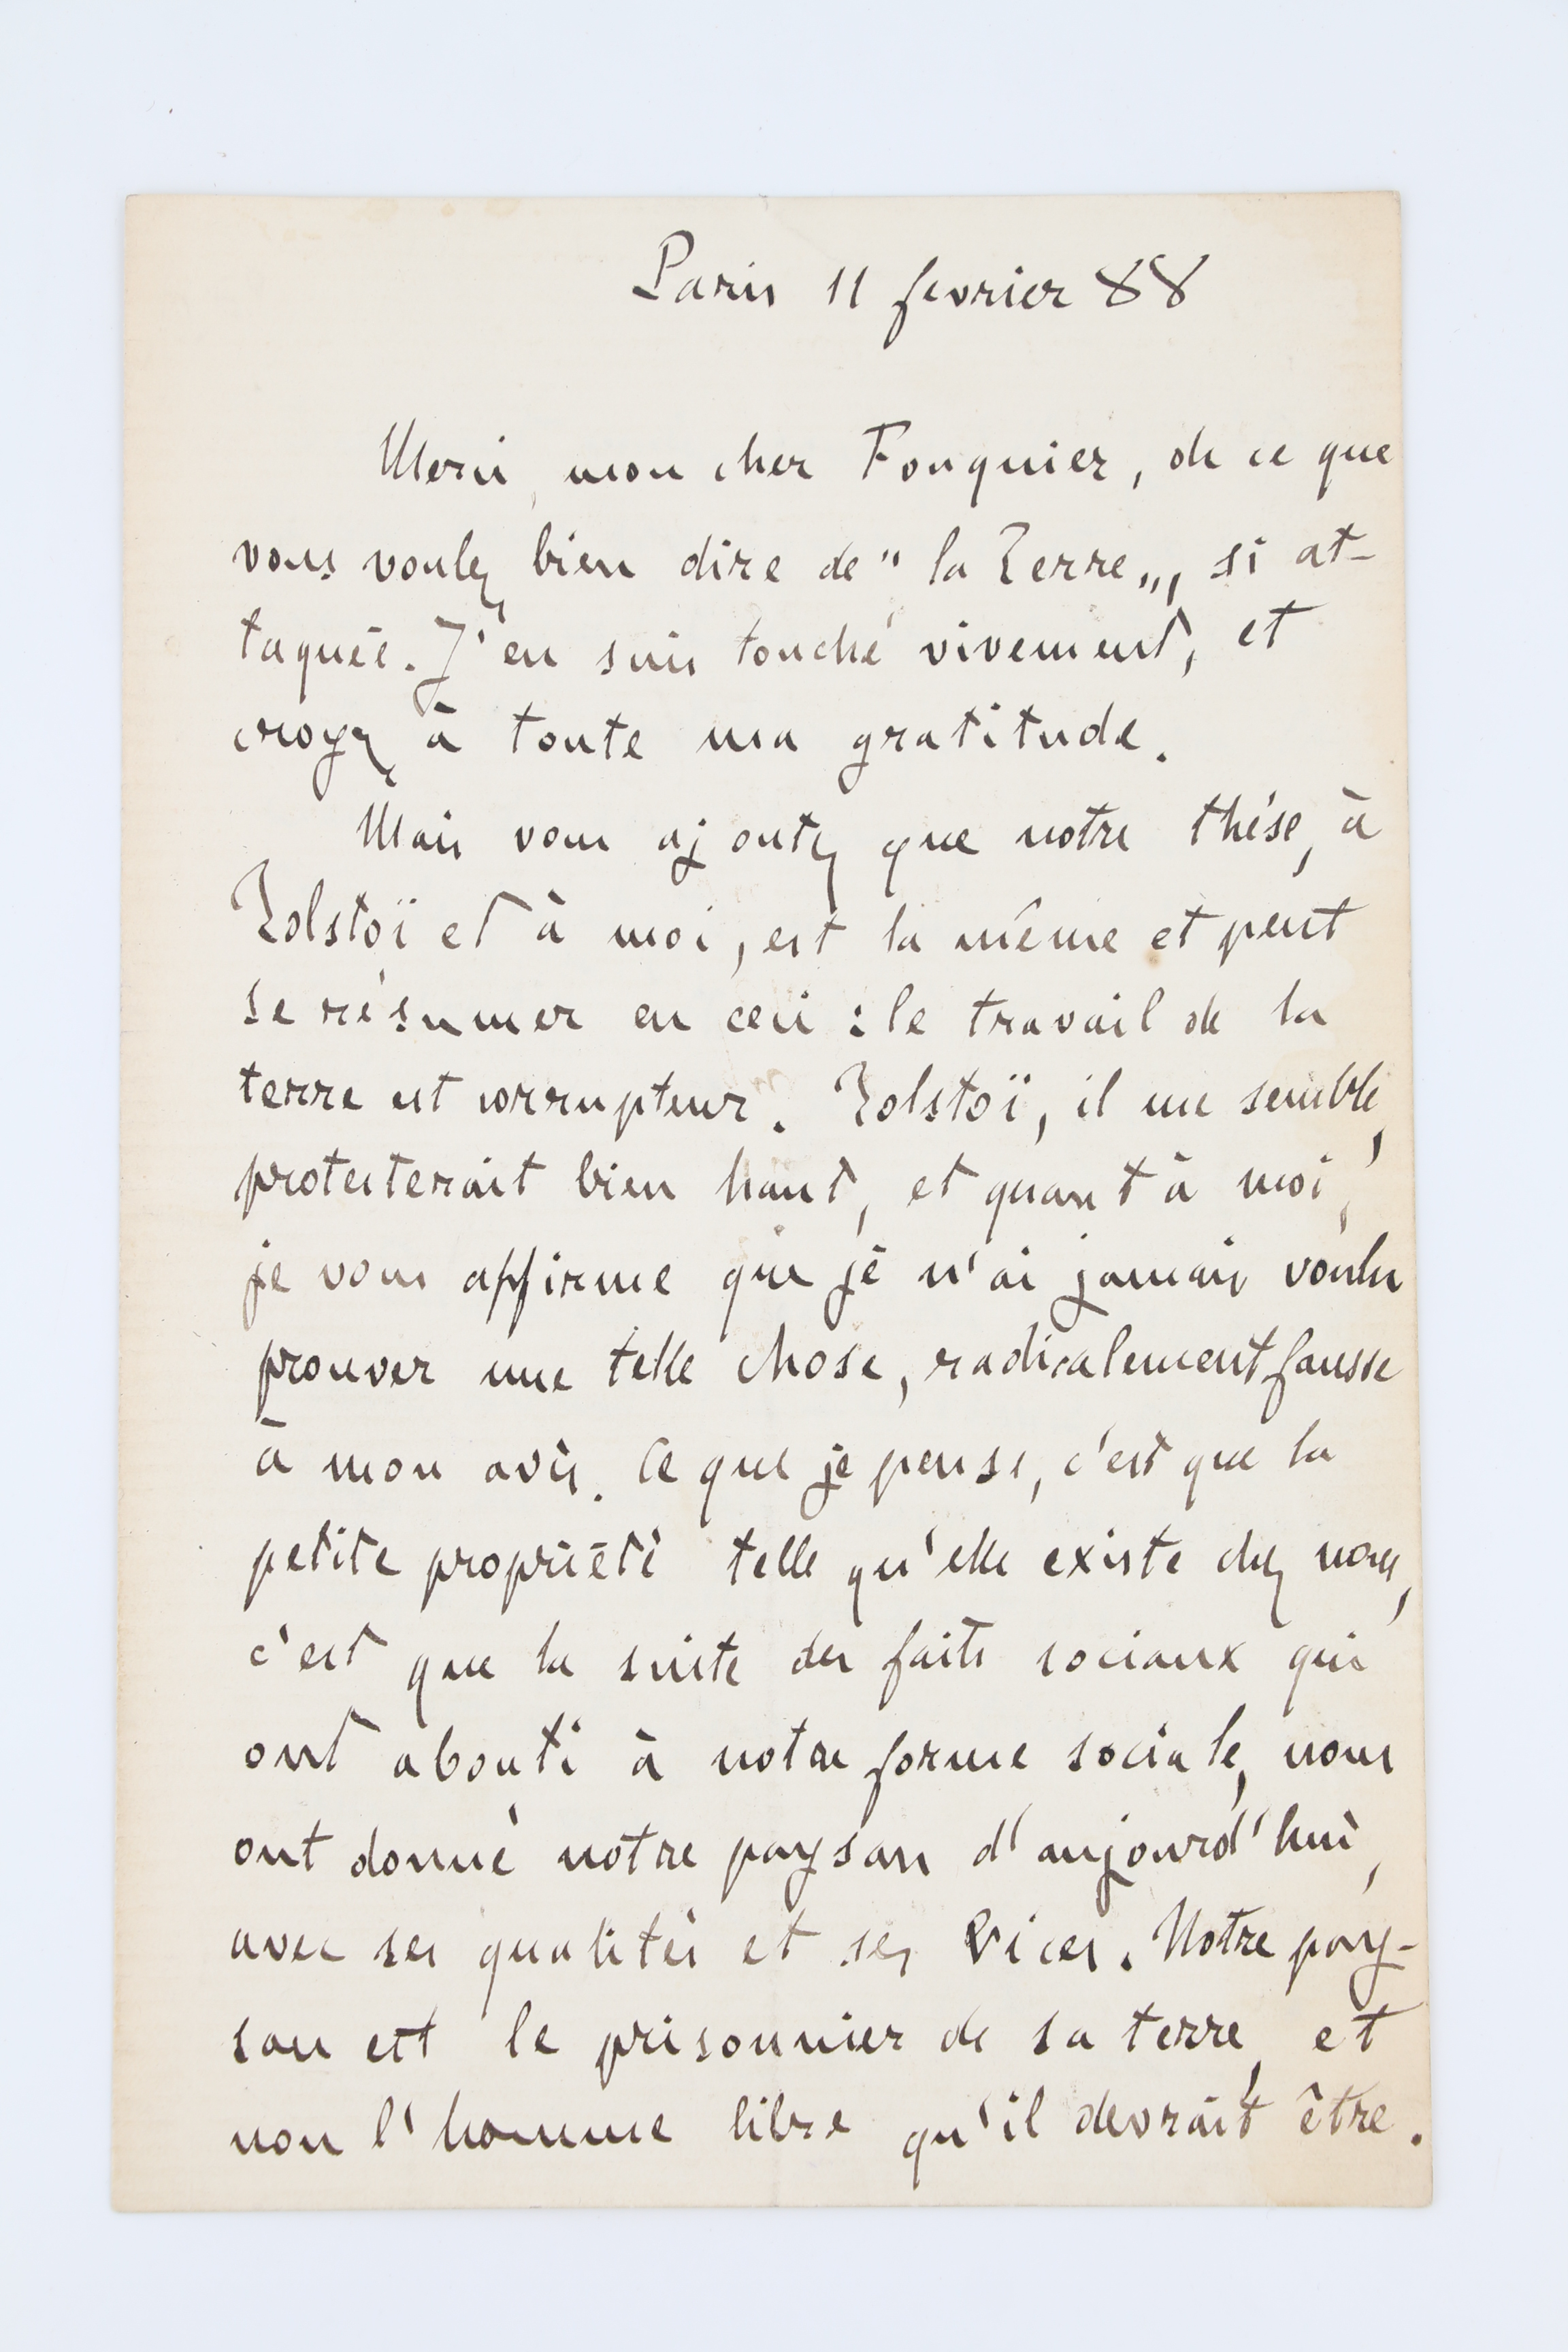 Paris 11 fevrier 88
Merci, mon cher Fouquier, de ce que
vous voulez bien dire de "la Terre", si at-
taquée. J'en suis touché vivement, et
croyez à toute ma gratitude.
Mais vous ajoutez que notre thèse, à
Tolstoï et à moi, est la même et peut
se résumer en ceci : le travail de la
terre est corrupteur. Tolstoï, il me semble,
protesterait bien haut, et quant à moi,
je vous affirme que je n'ai jamais voulu
prouver une telle chose, radicalement fausse
à mon avis. Ce que je pense, c'est que la
petite propriété telle qu'elle existe chez nous,
c'est que la suite des faits sociaux qui
ont abouti à notre forme sociale, nous
ont donné notre paysan d'aujourd'hui,
avec ses qualités et ses vices. Notre pay-
san est le prisonnier de sa terre, et
non l'homme libre qu'il devrait être.